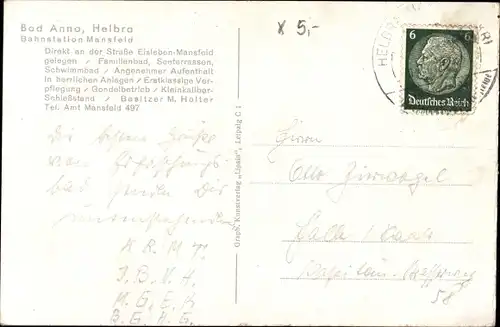 x 5,-
Bad Anna, Helbra
Bahnstation Mansfeld
Direkt an der Straße Eisleben-Mansfeld
gelegen / Familienbad, Seeterrassen,
Schwimmbad / Angenehmer Aufenthalt
in herrlichen Anlagen / Erstklassige Ver-
pflegung / Gondelbetrieb / Kleinkaliber-
Schießstand / Besitzer M. Holter
Tel. Amt Mansfeld 497
6 6
Deutsches Reich
HELBR
Die besten Grüße
vom
bad senden Dir
K. R. M. T.
J. B. V. H.
M. G. E. K
B. G. H. G.
Graph. Kunstverlag „Upala", Leipzig C 1
Herrn
Otto Ziervogel
Halle / Saale
58